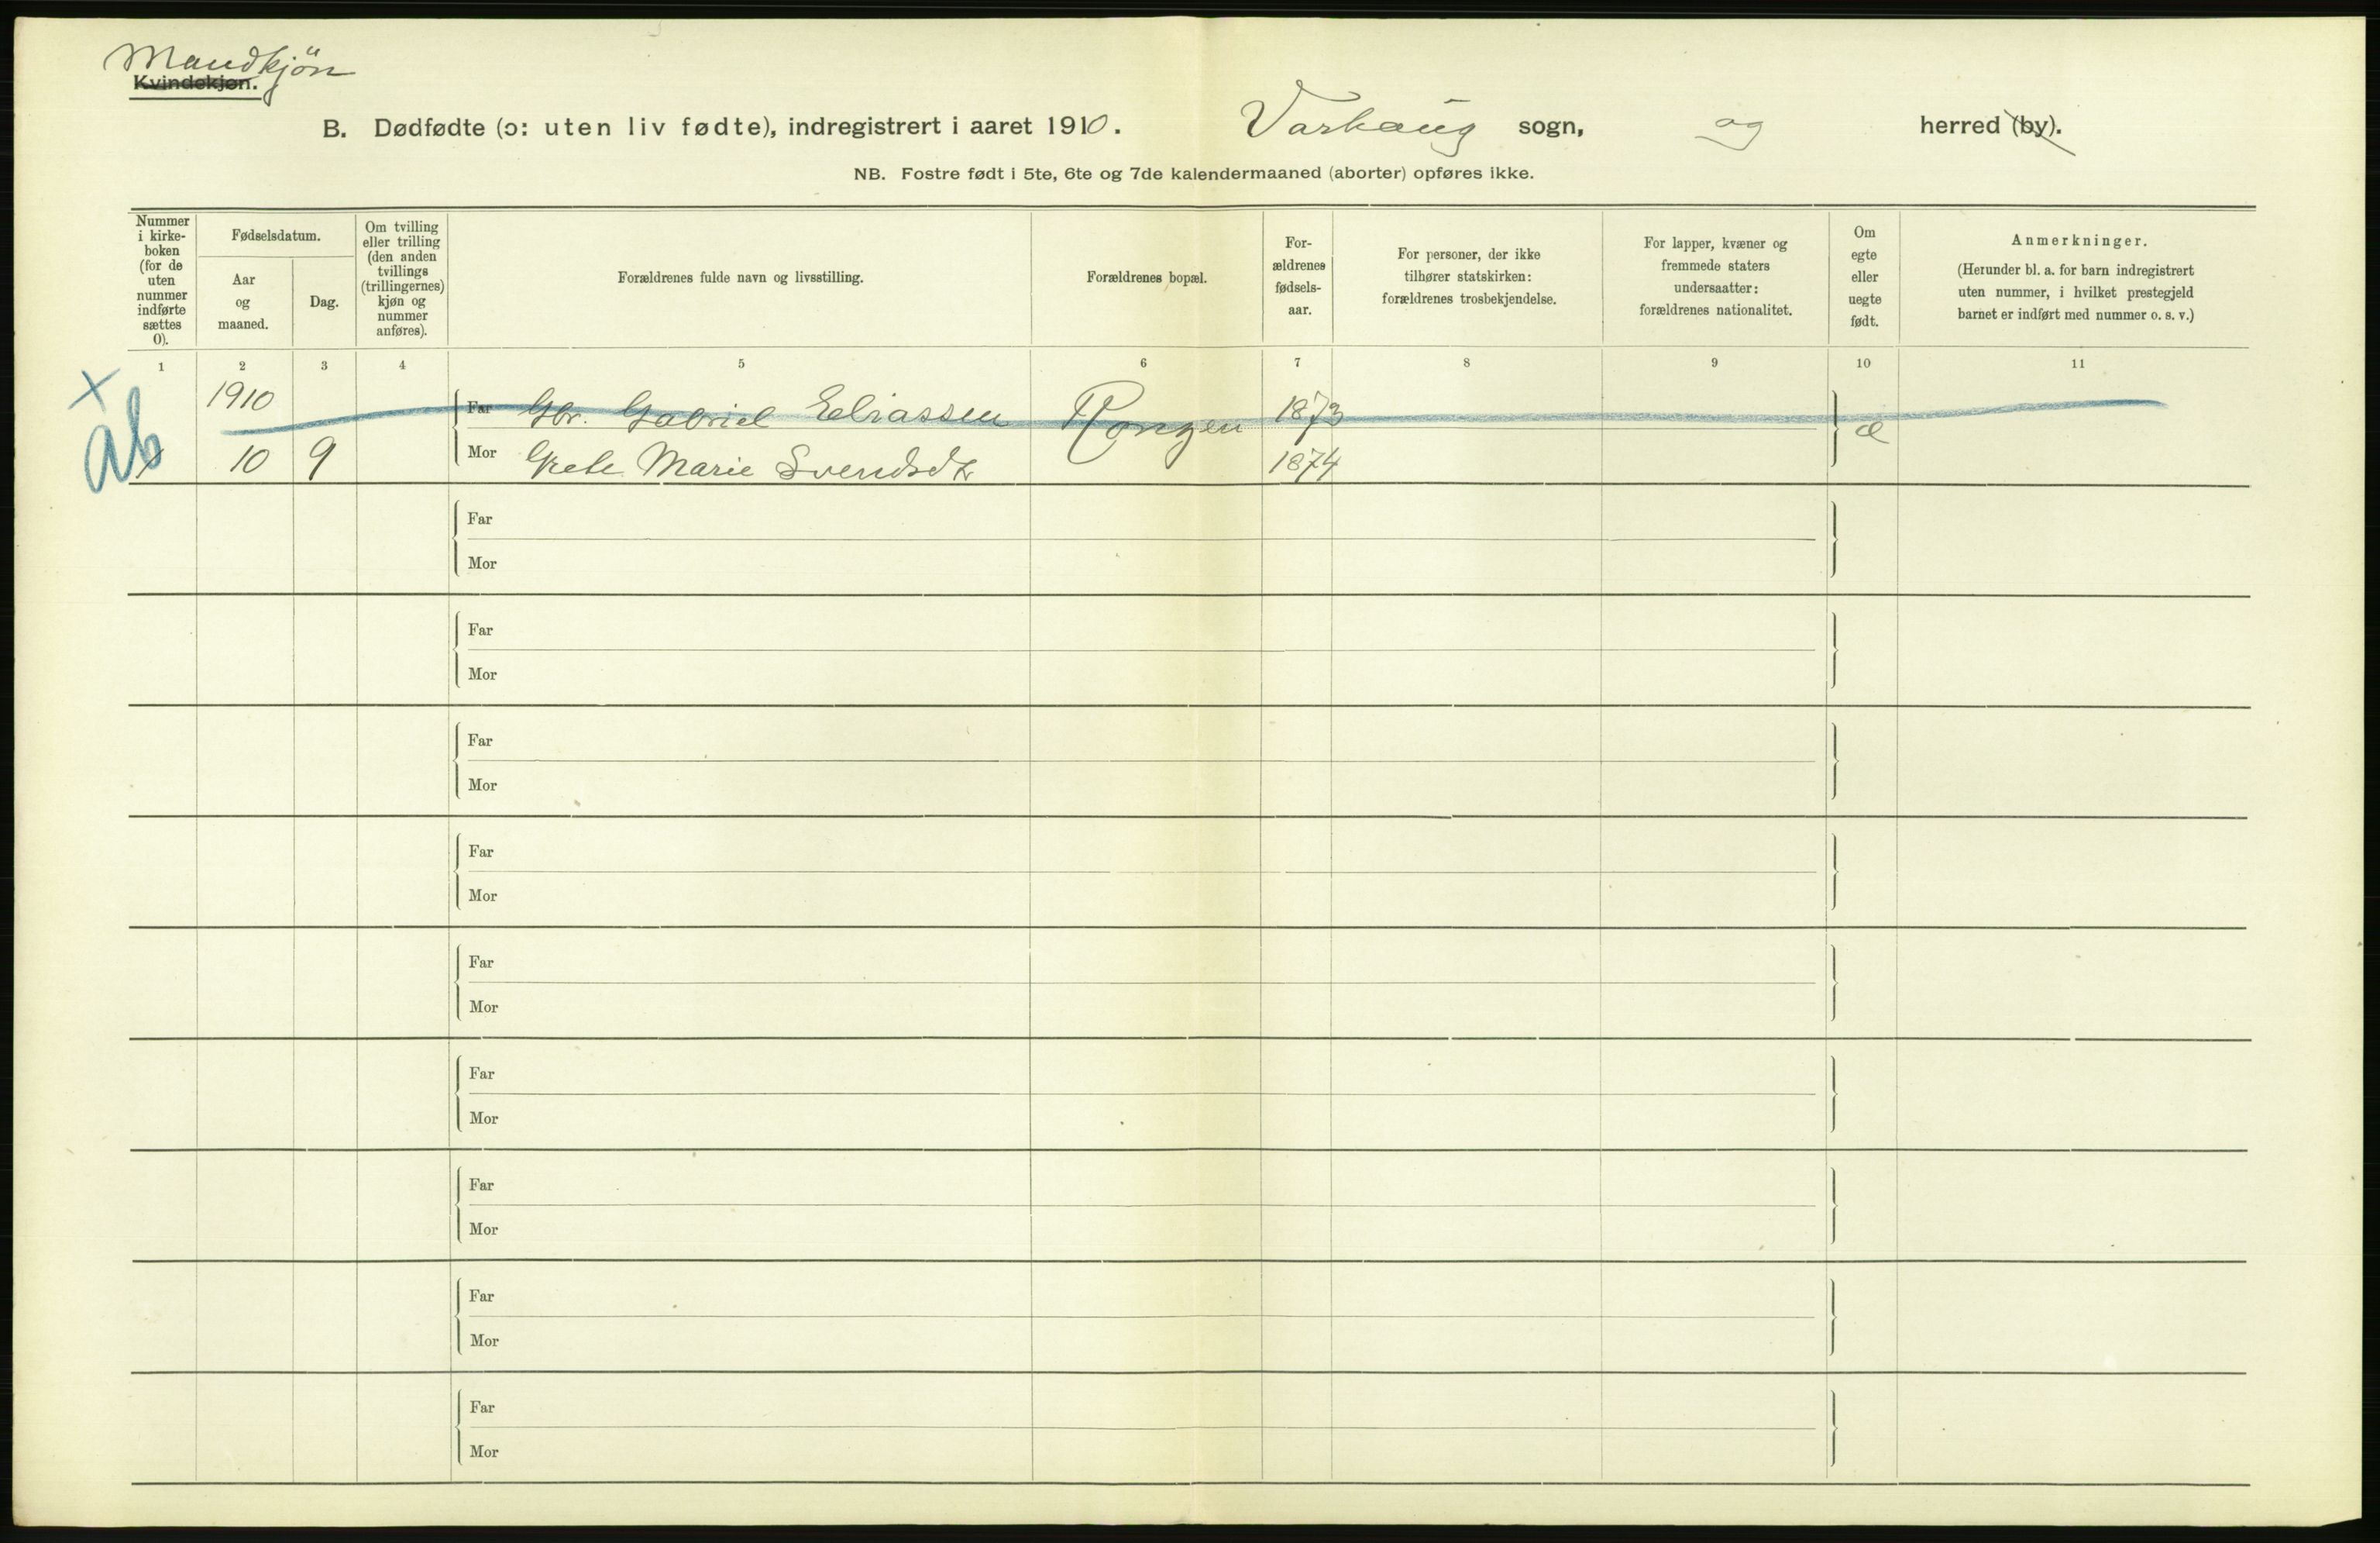 Mandkjøn
Kvindekjøn.
B. Dødfødte (ɔ: uten liv fødte), indregistrert i aaret 1910. Varhaug sogn, og herred (by).
NB. Fostre født i 5te, 6te og 7de kalendermaaned (aborter) opføres ikke.
Nummer i kirke-boken (for de uten nummer indførte sættes 0).
Fødselsdatum.
Aar og maaned.
Dag.
Om tvilling eller trilling (den anden tvillings (trillingernes) kjøn og nummer anføres).
Forældrenes fulde navn og livsstilling.
Forældrenes bopæl.
For-ældrenes fødsels-aar.
For personer, der ikke tilhører statskirken: forældrenes trosbekjendelse.
For lapper, kvæner og fremmede staters undersaatter: forældrenes nationalitet.
Om egte eller uegte født.
Anmerkninger.
(Herunder bl. a. for barn indregistrert uten nummer, i hvilket prestegjeld barnet er indført med nummer o. s. v.)
1 2 3 4 5 6 7 8 9 10 11
x 1910 Far Gbr. Gabriel Eliassen Rongen 1873 æ
ab 10 9 Mor Grete Marie Svendsdtr 1874
Far
Mor
Far
Mor
Far
Mor
Far
Mor
Far
Mor
Far
Mor
Far
Mor
Far
Mor
Far
Mor